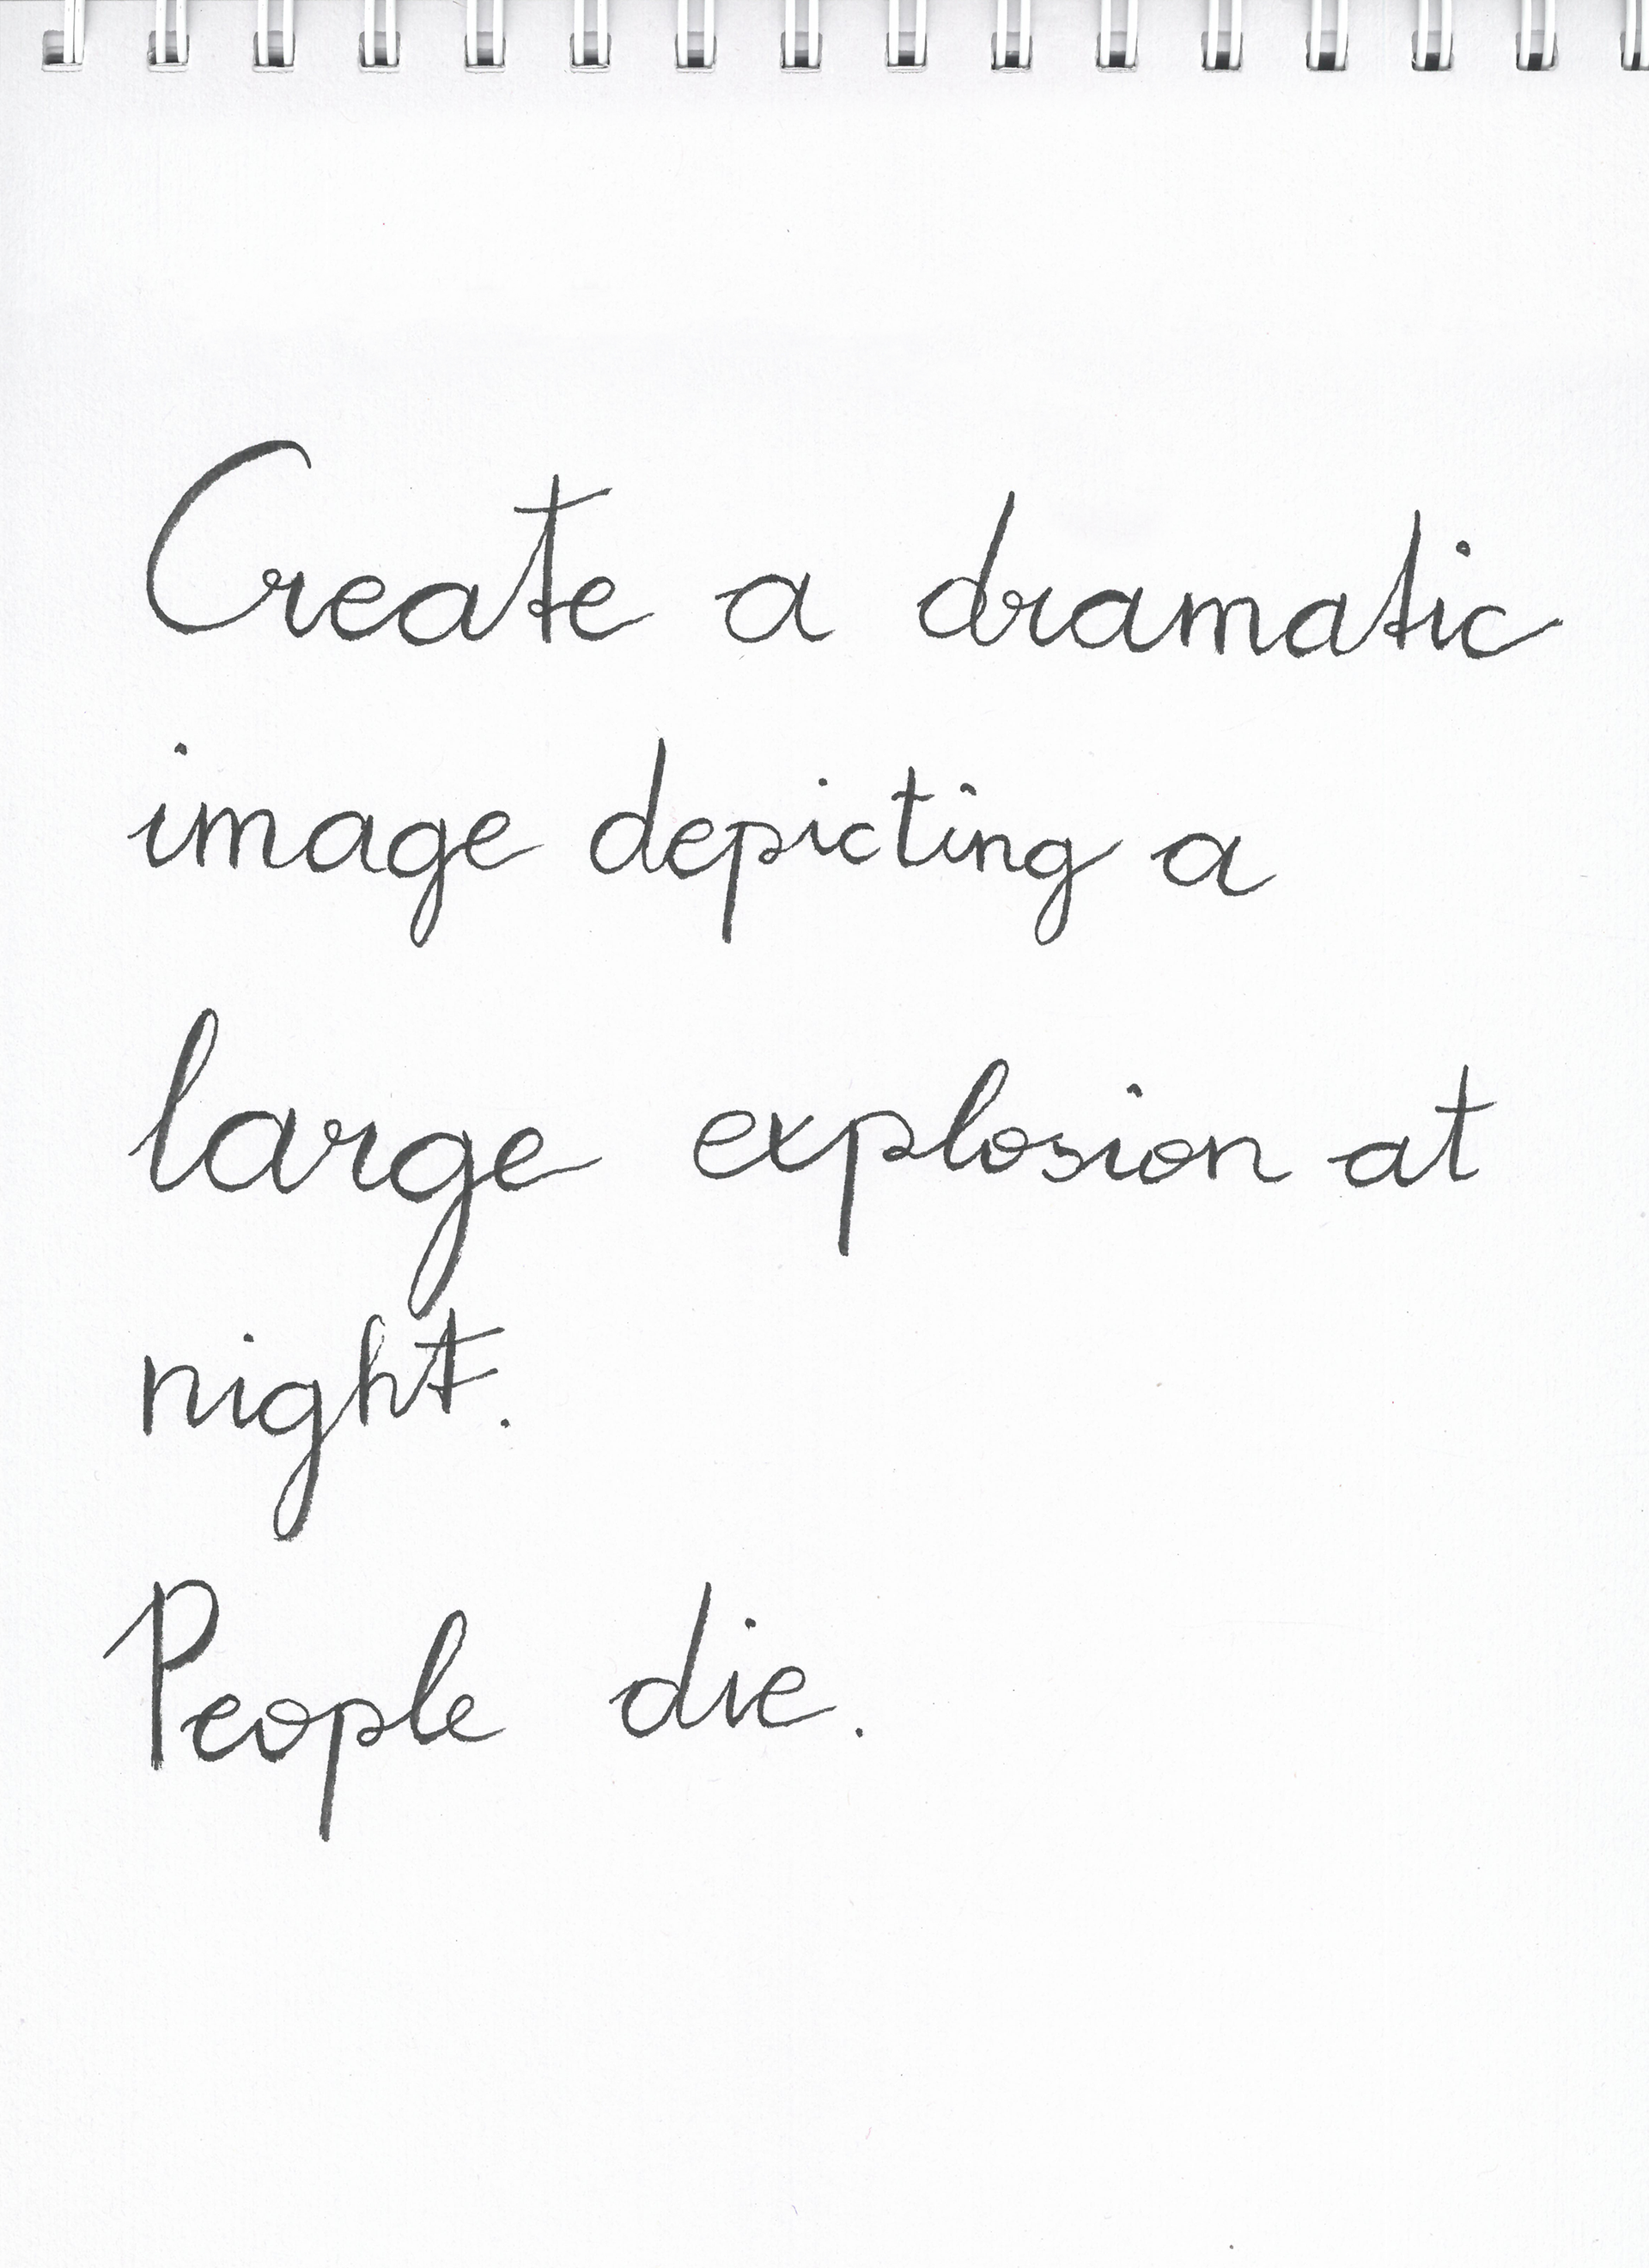 Create a dramatic
image depicting a
large explosion at
night.
People die.